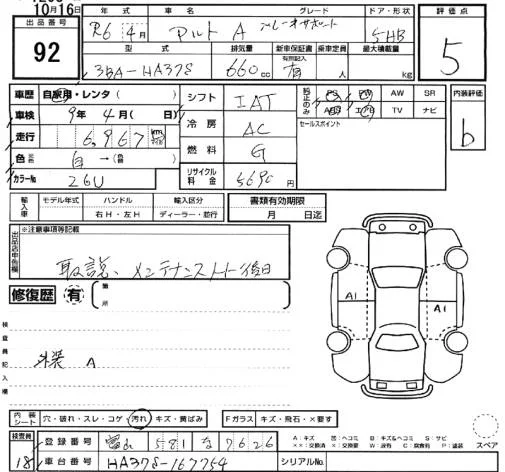 10月16日
出品番号
92
年式 車名 グレード ドア・形状
R6 4月 アルト A 5HB
型式 排気量 新車保証書 乗車定員 最大積載量
有別記入
3BA-HA37S 660cc 有 人 kg
評価点
5
車歴 自家用・レンタ( )
車検 9年4月( 日)
走行 6,967 km マイル
色 元色 白→(色替 )
カラーNo 26U
シフト IAT
冷房 AC
燃料 G
リサイクル料金 5690円
純正のみ PS PW AW SR
エアB TV ナビ
セールスポイント
内装評価
b
輸入車 モデル年式 ハンドル 輸入区分
右H・左H ディーラー・並行
書類有効期限
月 日迄
出品店申告欄
※注意事項等記載
取説、メンテナンスノート後日
修復歴 有 箇所
検査員記入欄
外装 A
A1
A1
内装シート 穴・破れ・スレ・コゲ・汚れ・キズ・黄ばみ
Fガラス キズ・飛石・×要す
A:キズ 凹:ヘコミ B:キズ&ヘコミ S:サビ
××:交換済 ×:要交換 W:波有 C:腐食有 P:塗装
スペア
検査員
18
登録番号 581 な 7626
車台番号 HA37S-167754
シリアルNo.